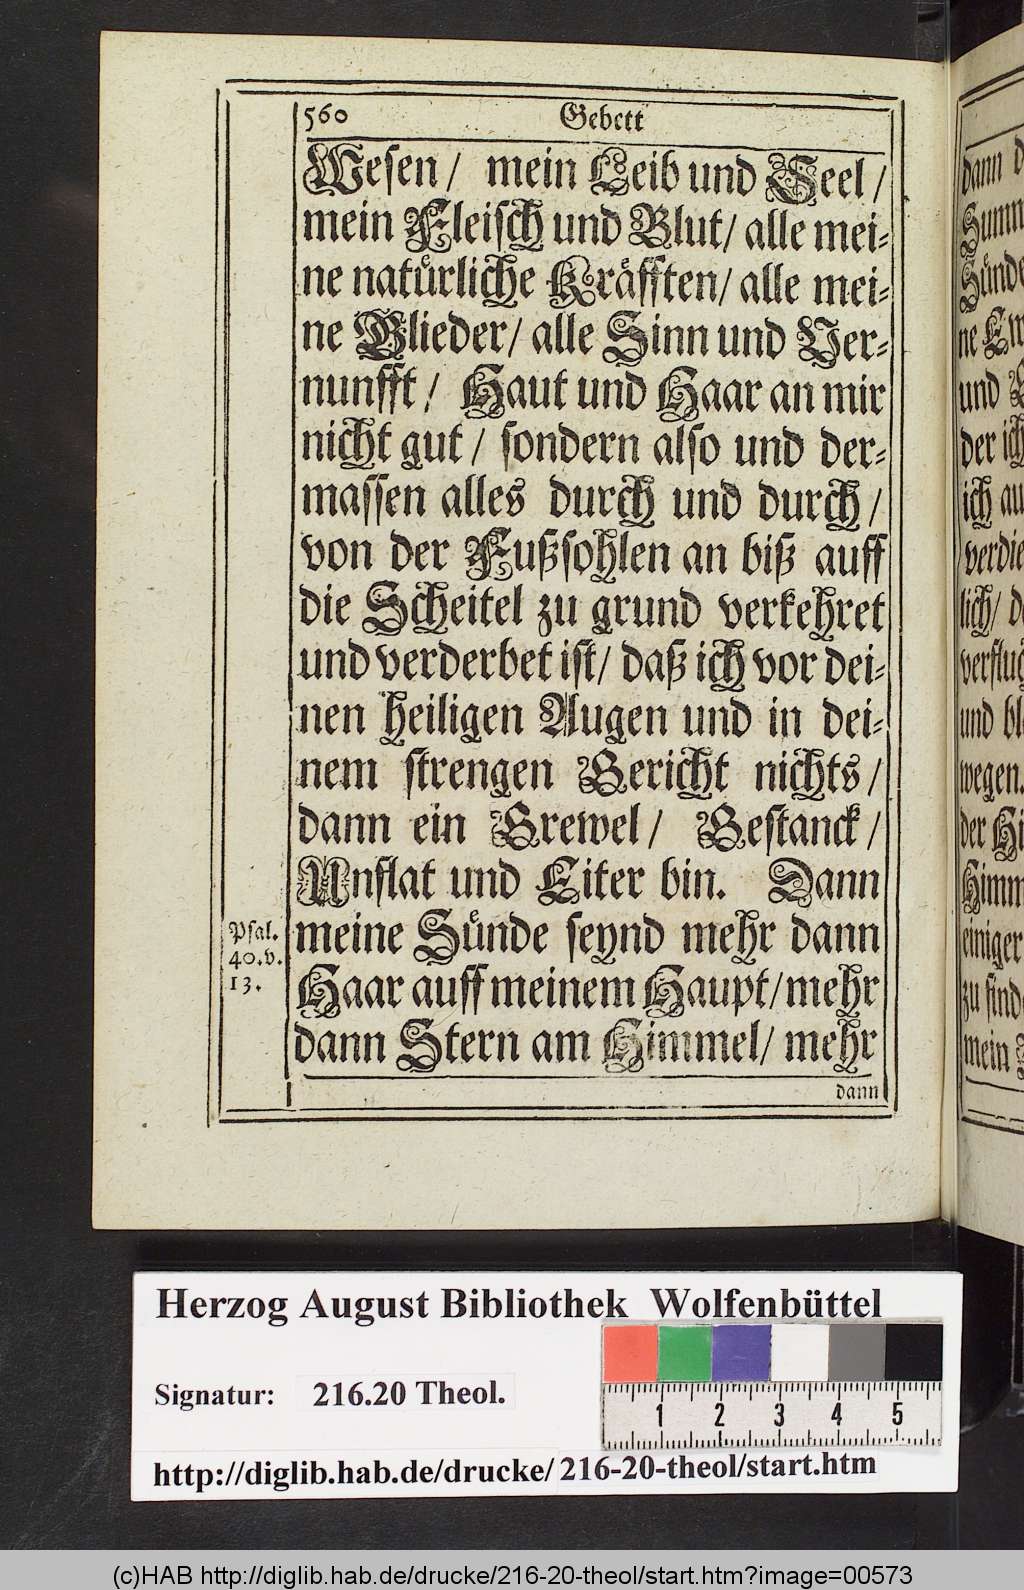 560 Gebett
Wesen / mein Leib und Seel /
mein Fleisch und Blut / alle mei-
ne natürliche Kräfften / alle mei-
ne Glieder / alle Sinn und Ver-
nunfft / Haut und Haar an mir
nicht gut / sondern also und der-
massen alles durch und durch /
von der Fußsohlen an biß auff
die Scheitel zu grund verkehret
und verderbet ist / daß ich vor dei-
nen heiligen Augen und in dei-
nem strengen Gericht nichts /
dann ein Grewel / Gestanck /
Unflat und Eiter bin. Dann
meine Sünde seynd mehr dann
Haar auff meinem Haupt / mehr
dann Stern am Himmel / mehr
dann
Psal.
40.v.
13.
dann
ne
und
der ich
ich
lich /
und
wegen.
der
einiger
zu
mein
Herzog August Bibliothek Wolfenbüttel
Signatur: 216.20 Theol.
1 2 3 4 5
http://diglib.hab.de/drucke/216-20-theol/start.htm
(c)HAB http://diglib.hab.de/drucke/216-20-theol/start.htm?image=00573